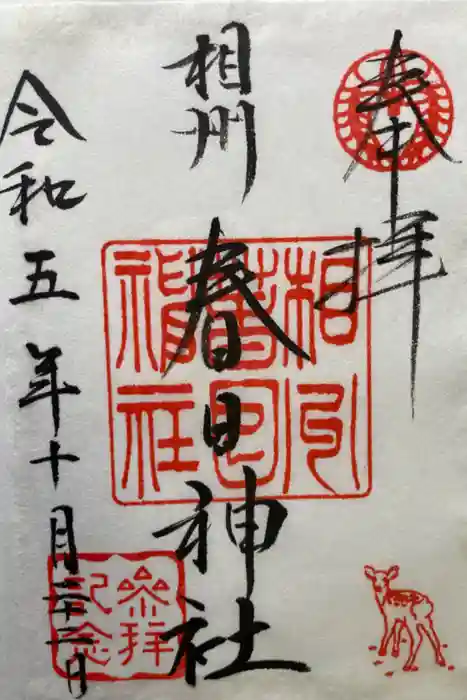 奉拝
相州
春日神社
令和五年十月二十二日
相州
春日
神社
参拝
記念